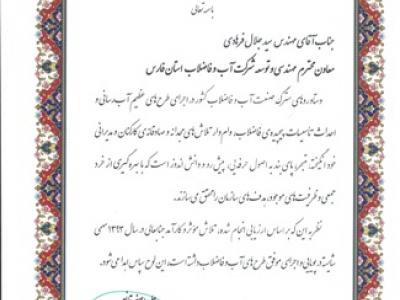 باسمه تعالی
جناب آقای مهندس سید جلال فرهادی
معاون محترم مهندسی و توسعه شرکت آب و فاضلاب استان فارس
دستاوردهای سترگ صنعت آب و فاضلاب کشور در اجرای طرح‌های عظیم آب‌رسانی و
احداث تاسیسات پیچیده‌ی فاضلاب، وام‌دار تلاش‌های مجدانه و صادقانه‌ی کارکنان و مدیرانی
خود انگیخته، متبحر، پای‌بند به اصول حرفه‌ایی، پیش‌رو و دانش‌اندوز است که با بهره‌گیری از خرد
جمعی و ظرفیت‌های موجود، هدف‌های سازمان را محقق می‌سازند.
نظر به این که بر اساس ارزیابی انجام شده، تلاش موثر و کارآمد جنابعالی در سال ۱۳۹۳ سهمی
شایسته در پویایی و اجرای موفق طرح‌های آب و فاضلاب داشته است، این لوح سپاس اهدا می‌شود.